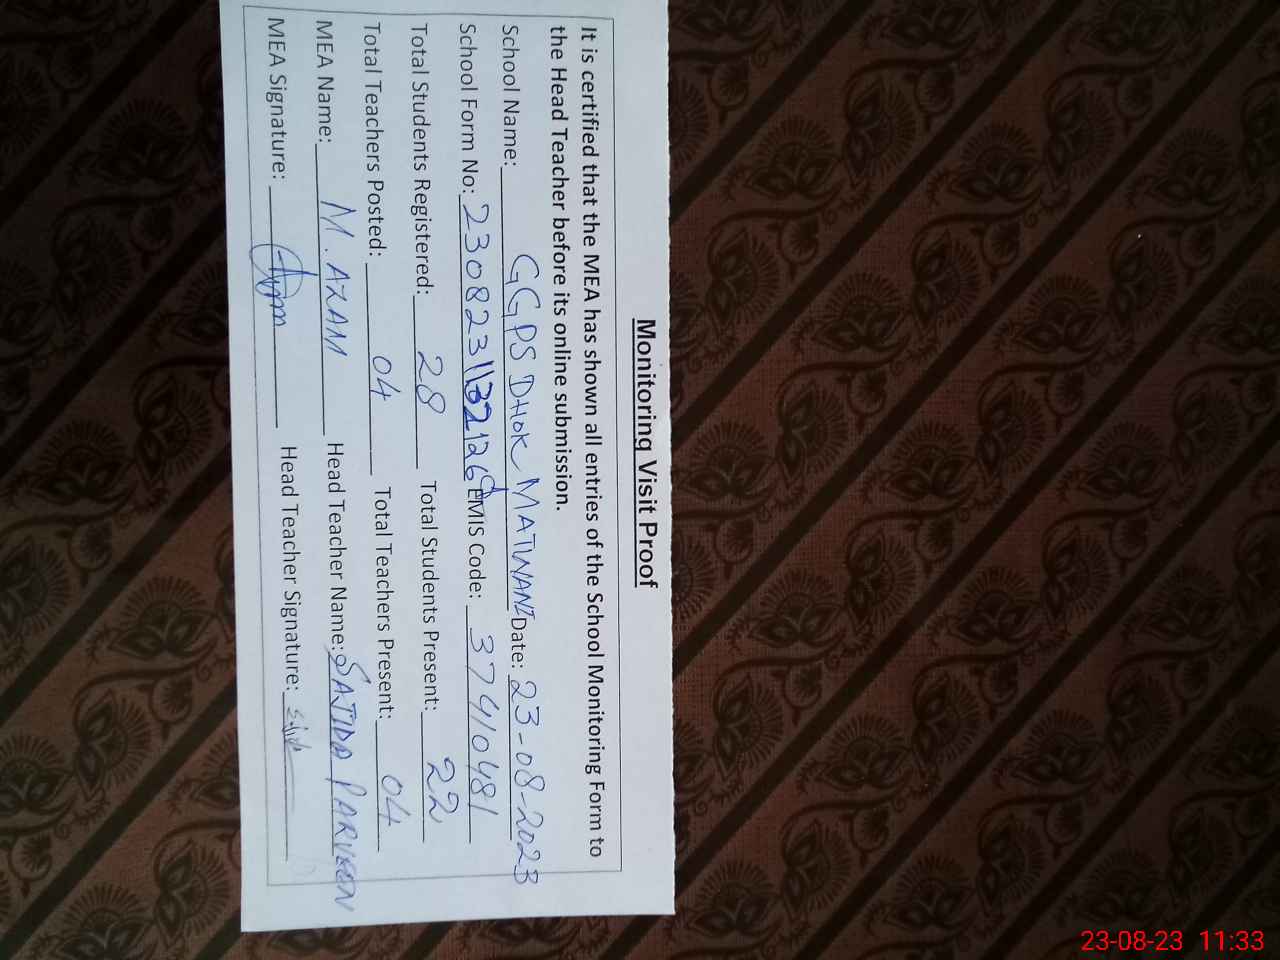 Monitoring Visit Proof
It is certified that the MEA has shown all entries of the School Monitoring Form to
the Head Teacher before its online submission.
School Name: GGPS DHOK MATWANI Date: 23-08-2023
School Form No: EMIS Code: 37410481
Total Students Registered: 28 Total Students Present: 22
Total Teachers Posted: 04 Total Teachers Present: 04
MEA Name: M. AZAM Head Teacher Name: SAJIDA PARVEEN
MEA Signature: Head Teacher Signature:
23-08-23 11:33